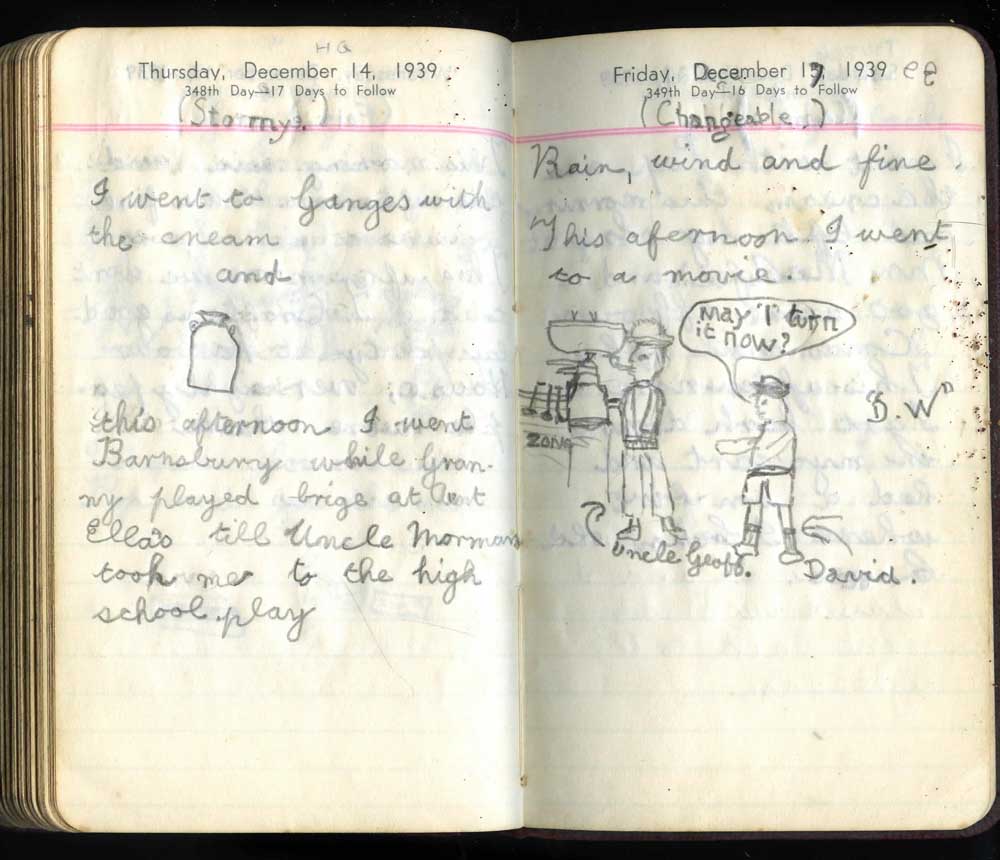 HG
Thursday, December 14, 1939
348th Day—17 Days to Follow
(Stormy.)
I went to Ganges with
the cream
and
this afternoon I went
Barnsbury while Gran-
ny played brige at Aent
Ella's till Uncle Morman
took me to the high
school play
Friday, December 15, 1939
349th Day—16 Days to Follow
(Changeable.)
Rain, wind and fine.
This afernoon I went
to a movie.
may I turn
it now?
"D.W"
ZONE
Uncle Geoff.
David.